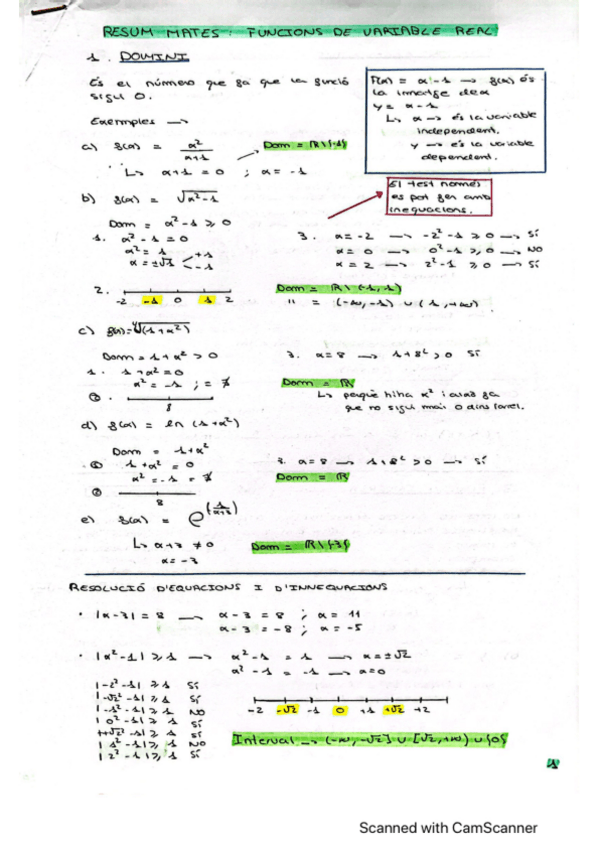 RESUM MATES: FUNCIONS DE VARIABLE REAL
1. DOMINI
És el número que fa que la funció
sigui 0.
Exemples →
a) f(x) = x²/(x+1)
Dom = ℝ\{-1}
L> x+1 = 0 ; x = -1
F(x) = x-1 → f(x) és
la imatge de x
y = x-1
L> x → és la variable
independent.
y → és la variable
dependent.
El test només
es pot fer amb
inequacions.
b) f(x) = √(x²-1)
Dom = x²-1 ≥ 0
1. x²-1 = 0
x² = 1
x = ±√1 < +1
-1
3. x = -2 → -2²-1 ≥ 0 → SÍ
x = 0 → 0²-1 ≥ 0 → NO
x = 2 → 2²-1 ≥ 0 → SÍ
2. -2 -1 0 1 2
Dom = ℝ\(-1,1)
" = (-∞,-1) ∪ (1,+∞)
c) f(x) = ∜(1+x²)
Dom = 1+x² > 0
1. 1+x² = 0
x² = -1 ; = ∄
②. 8
3. x = 8 → 1+8² > 0 SÍ
Dom = ℝ
L> perquè hi ha x² i això fa
que no sigui mai 0 dins l'arrel.
d) f(x) = ln (1+x²)
Dom = 1+x²
① 1+x² = 0
x² = -1 = ∄
② 8
3. x = 8 → 1+8² > 0 → SÍ
Dom = ℝ
e) f(x) = e^(1/(x+3))
L> x+3 ≠ 0
x = -3
Dom = ℝ\{-3}
RESOLUCIÓ D'EQUACIONS I D'INNEQUACIONS
· |x-3| = 8 → x-3 = 8 ; x = 11
x-3 = -8 ; x = -5
· |x²-1| ≥ 1 → x²-1 = 1 → x = ±√2
x²-1 = -1 → x = 0
|-2²-1| ≥ 1 SÍ
|-√2²-1| ≥ 1 SÍ
|-1²-1| ≥ 1 NO
|0²-1| ≥ 1 SÍ
|+√2²-1| ≥ 1 SÍ
|1²-1| ≥ 1 NO
|2²-1| ≥ 1 SÍ
-2 -√2 -1 0 +1 +√2 +2
Interval → (-∞,-√2] ∪ [√2,+∞) ∪ {0}
1
Scanned with CamScanner